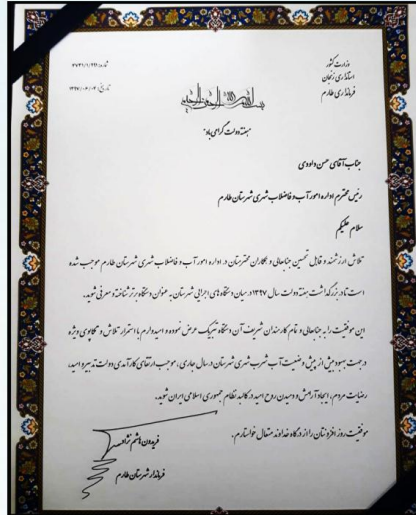 وزارت کشور
استانداری زنجان
فرمانداری طارم
شماره: ۳۷۳۱/۱/۲۴۶
تاریخ: ۱۳۹۷/۰۶/۰۴
بسم الله الرحمن الرحیم
هفته دولت گرامی باد.
جناب آقای حسن داودی
رئیس محترم اداره امور آب و فاضلاب شهری شهرستان طارم
سلام علیکم
تلاش ارزشمند و قابل تحسین جنابعالی و همکاران محترمتان در اداره امور آب و فاضلاب شهری شهرستان طارم موجب شده
است تا در بزرگداشت هفته دولت سال ۱۳۹۷ در میان دستگاه های اجرایی شهرستان به عنوان دستگاه برتر شناخته و معرفی شوید.
این موفقیت را به جنابعالی و تمام کارمندان شریف آن دستگاه تبریک عرض نموده و امیدوارم با استمرار تلاش و تکاپوی ویژه
در جهت بهبود بیش از پیش وضعیت آب شرب شهری شهرستان در سال جاری، موجب ارتقای کارآمدی دولت تدبیر و امید،
رضایت مردم، ایجاد آرامش و دمیدن روح امید در کالبد نظام جمهوری اسلامی ایران شوید.
موفقیت روز افزونتان را از درگاه خداوند متعال خواستارم.
فریدون هاشم نژاد
فرماندار شهرستان طارم